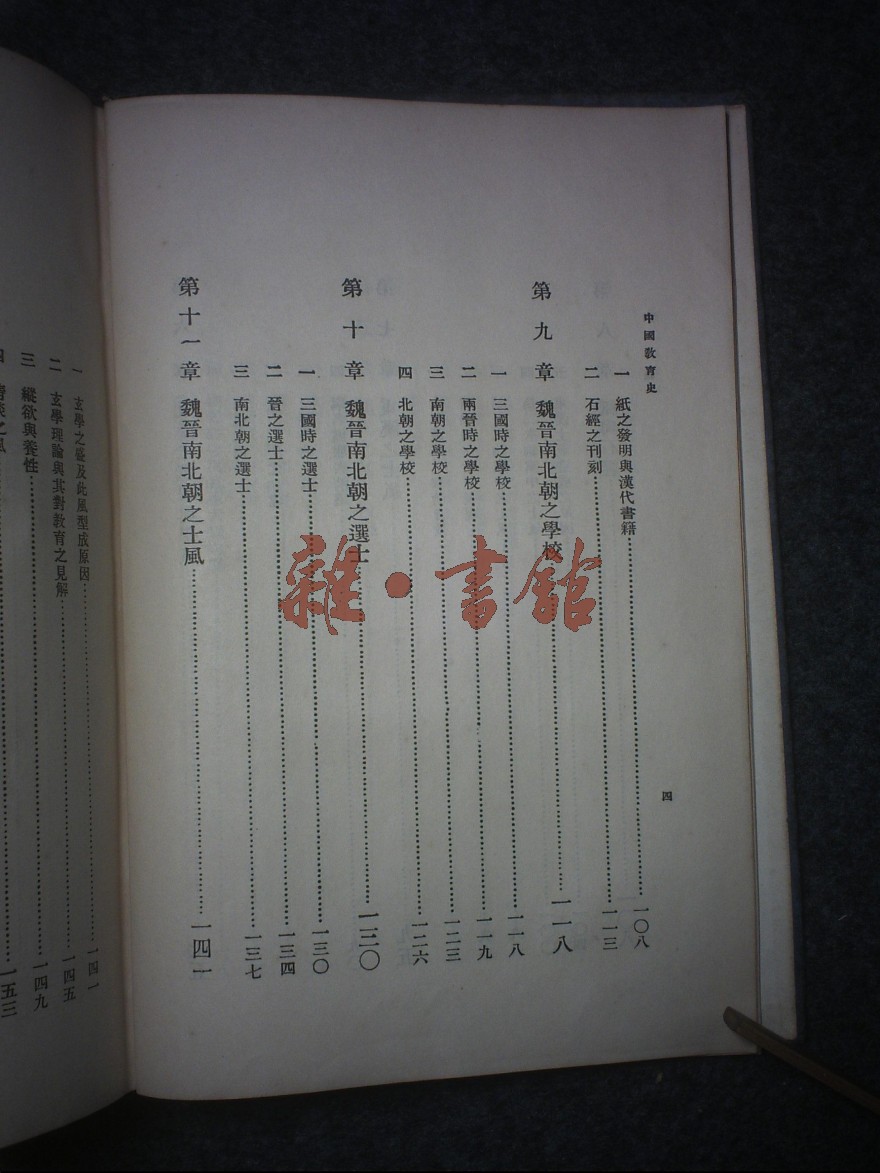 中國教育史
四
一 紙之發明與漢代書籍……一〇八
二 石經之刊刻……一一三
第九章 魏晉南北朝之學校……一一八
一 三國時之學校……一一八
二 兩晉時之學校……一一九
三 南朝之學校……一二三
四 北朝之學校……一二六
第十章 魏晉南北朝之選士……一三〇
一 三國時之選士……一三〇
二 晉之選士……一三四
三 南北朝之選士……一三七
第十一章 魏晉南北朝之士風……一四一
一 玄學之盛及此風型成原因……一四一
二 玄學理論與其對教育之見解……一四五
三 縱欲與養性……一四九
四 清談之風……一五三
雜·書館